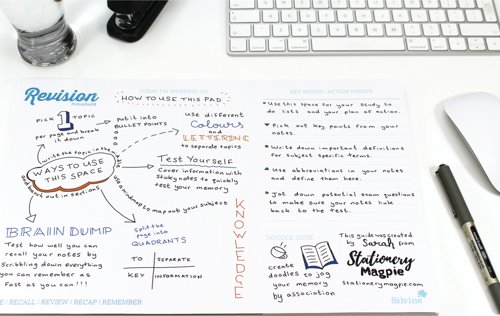 Revision
TODAY I'M WORKING ON...
HOW TO USE THIS PAD
PICK 1 TOPIC
per page and break
it down
put it into
BULLET POINTS
use different
Colours
and
LETTERING
to separate topics
write the topic in the
WAYS TO USE
THIS SPACE
and branch out in sections
Test Yourself
Cover information with
sticky notes to quickly
test your memory
use a roadmap to map out your subject
KNOWLEDGE
BRAIN DUMP
Test how well you can
recall your notes by
scribbling down everything
you can remember as
fast as you can!!!
Split the
page into
QUADRANTS
TO SEPARATE
KEY INFORMATION
/ RECALL / REVIEW / RECAP / REMEMBER
KEY NOTES / ACTION POINTS
Use this space for your study to
do lists and your plan of action.
Pick out key points from your
notes.
Write down important definitions
for subject specific terms.
Use abbreviations in your notes
and define them here.
Jot down potential exam questions
to make sure your notes link
back to the test.
DOODLE ZONE
create
doodles to jog
your memory
by association
This guide was created
by Sarah from
Stationery
Magpie
stationerymagpie.com
Silvine